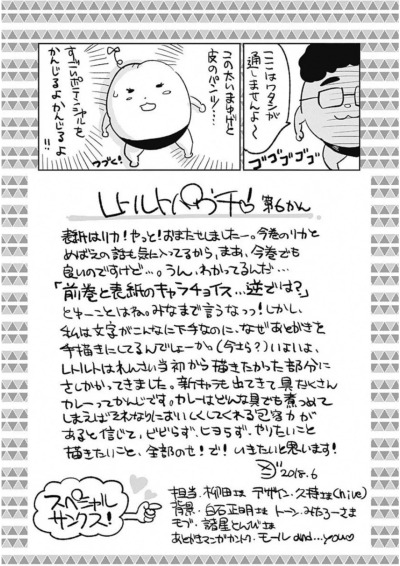 ここはワタシが
通しませんよ〜
ゴゴゴゴゴ
この太いまゆげと
皮のパンツ…
すごいポテンシャルを
かんじるよかんじるよ
つづく!
レトルトパウチ 第6かん
表紙はリカ!やっと!おまたせしましたー。今巻のリカと
めばえの話も気に入ってるから、まあ、今巻でも
良いのですけど…。うん、わかってるんだ…
「前巻と表紙のキャラチョイス…逆では?」
とゆーことはね。みなまで言うなっっ!しかし、
私は文字がこんなに下手なのに、なぜあとがきを
手描きにしてるんでしょーか。(今さら?)いよいよ、
レトルトはれんさい当初から描きたかった部分に
さしかかってきました。新キャラも出てきて具だくさん
カレーってかんじです。カレーはどんな具でも煮つめて
しまえばそれなりにおいしくしてくれる包容力が
あると信じて、ビビらず、ヒヨらず、やりたいこと
描きたいこと、全部のせ!で!いきたいと思います!
2018.6
スペシャル
サンクス!
担当.柳田さま デザイン.久持さま(hive)
背景.白石正明さま トーン.みたろーさま
モブ.諸星とんびさま
あとがきマンガカントク.モール and...you